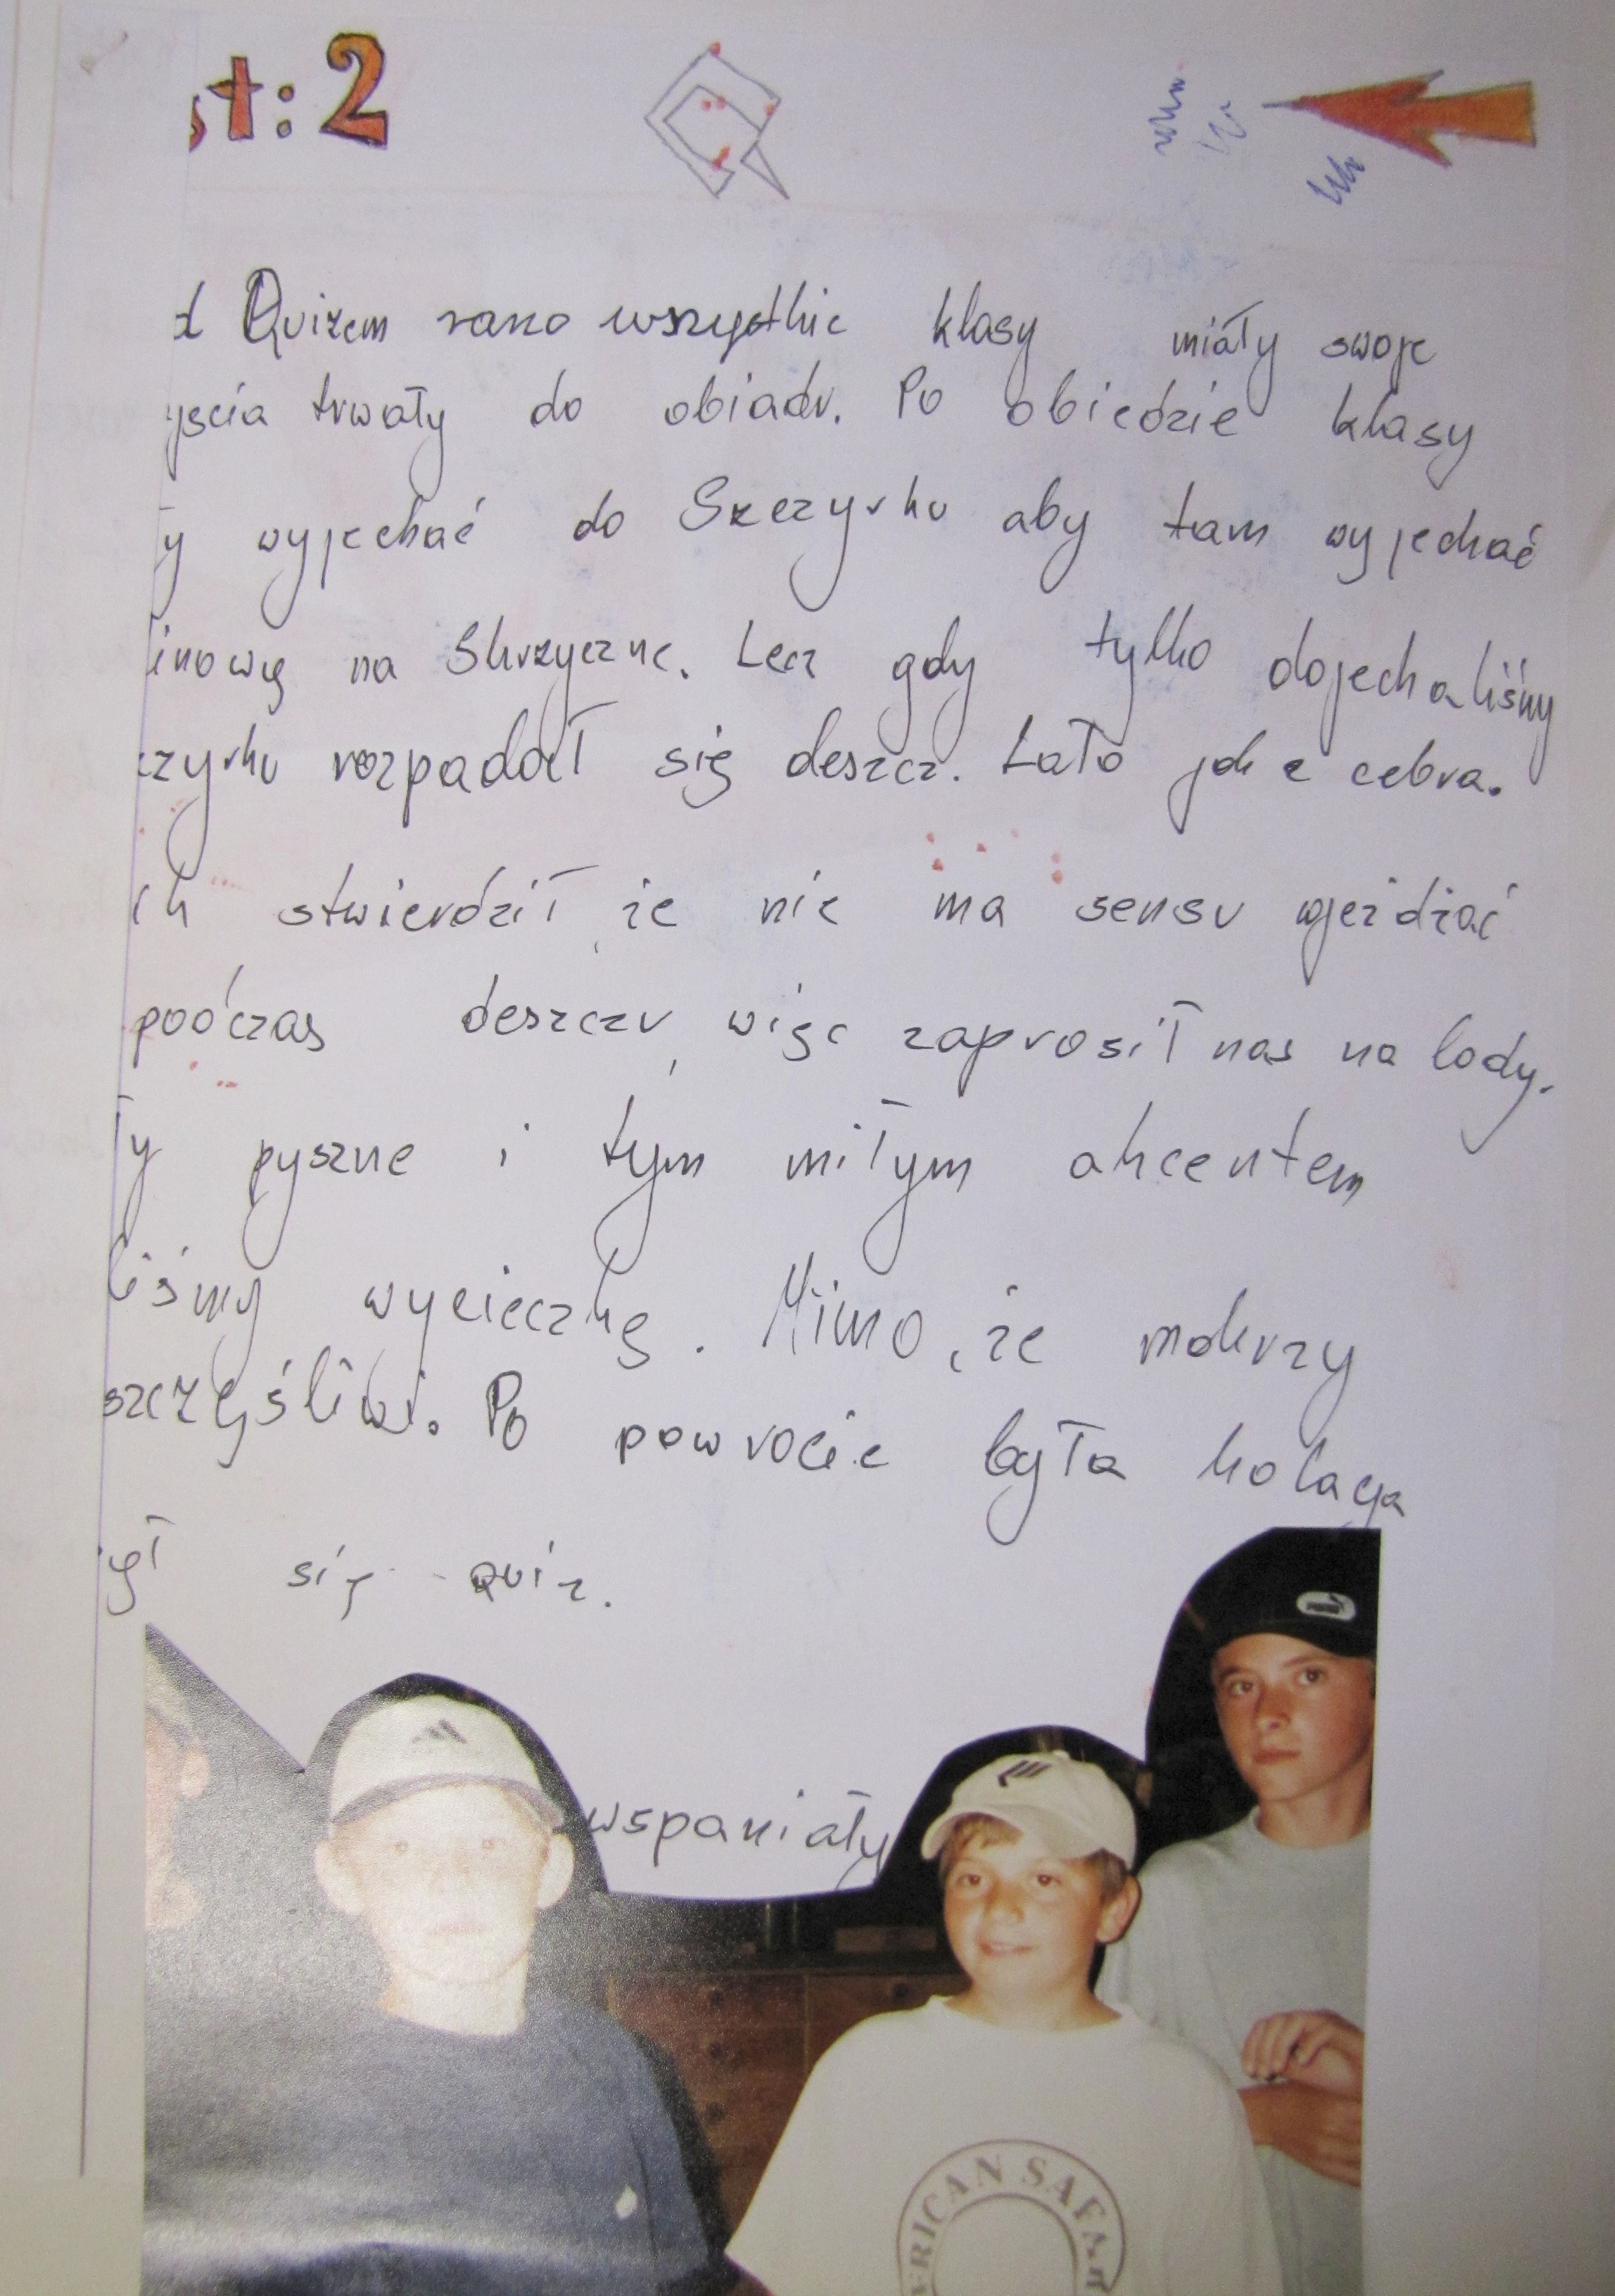 st: 2
d Quizem rano wszystkie klasy miały swoje
yścia trwały do obiadu. Po obiedzie klasy
y wyjechać do Szczyrku aby tam wyjechać
linową na Skrzyczne. Lecz gdy tylko dojechaliśmy
czyrku rozpadał się deszcz. Lało jak z cebra.
ek stwierdził, że nie ma sensu wjeżdżać
podczas deszczu, więc zaprosił nas na lody.
ły pyszne i tym miłym akcentem
liśmy wycieczkę. Mimo, że mokrzy
szczęśliwi. Po powrocie była kolacja
ył się quiz.
wspaniały
ERICAN SAFARI